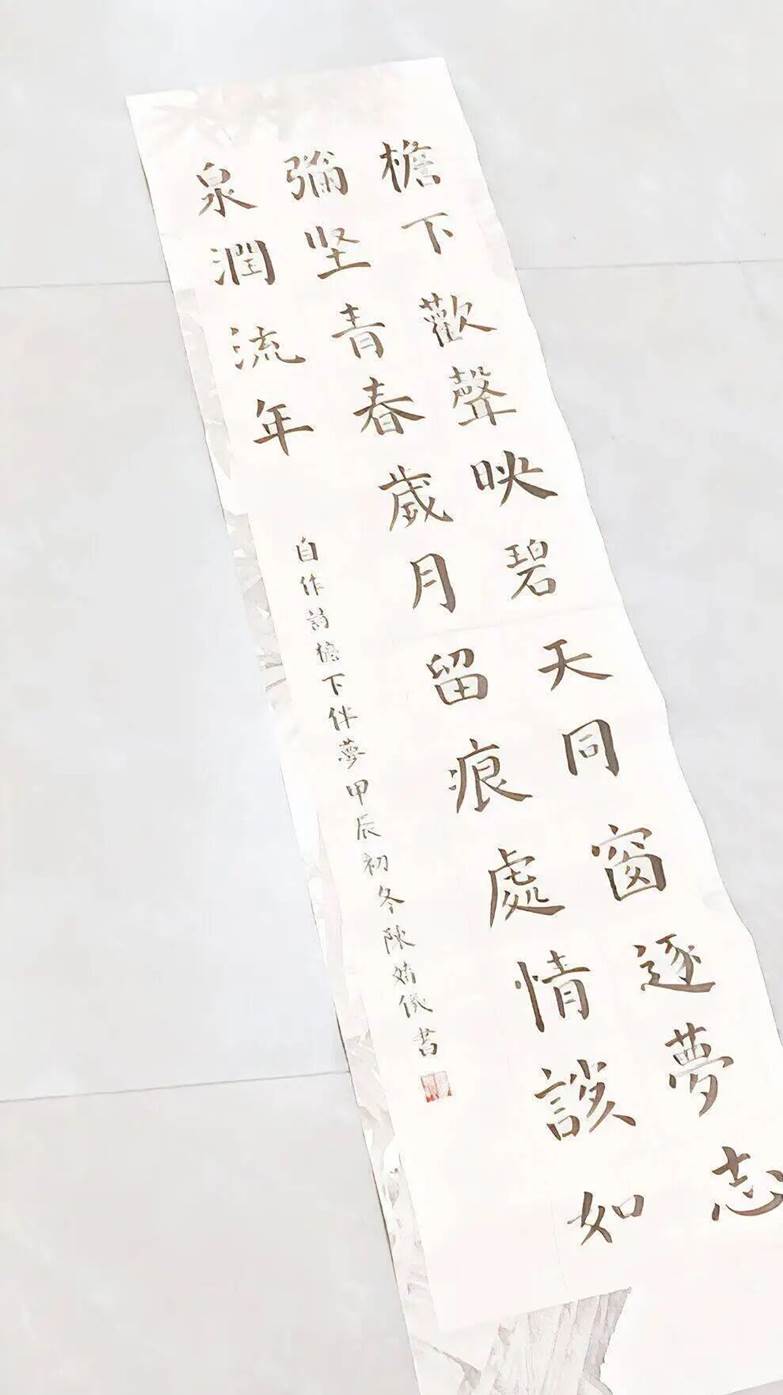 檐下歡聲映碧天同窗逐夢志
彌坚青春歲月留痕處情談如
泉潤流年
自作詩檐下伴夢甲辰初冬陳婧儀書